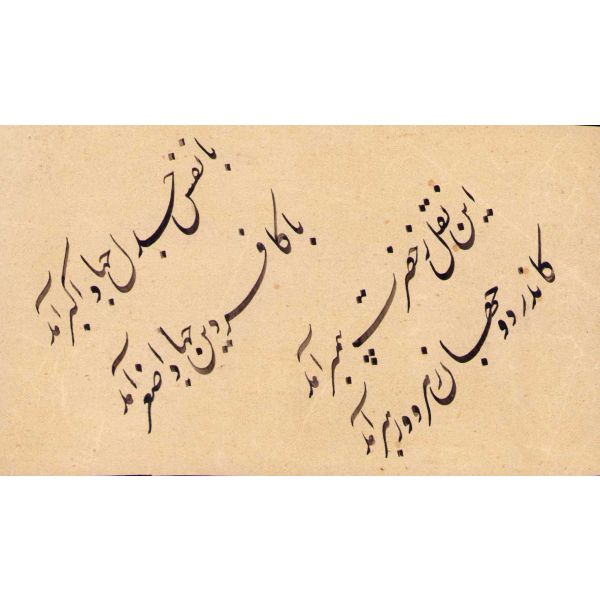 این نقل ز حضرت پیمبر آمد
کاندر دو جهان رهبر و
با کافر دین جهاد اصغر آمد
با نفس جدل جهاد اکبر آمد